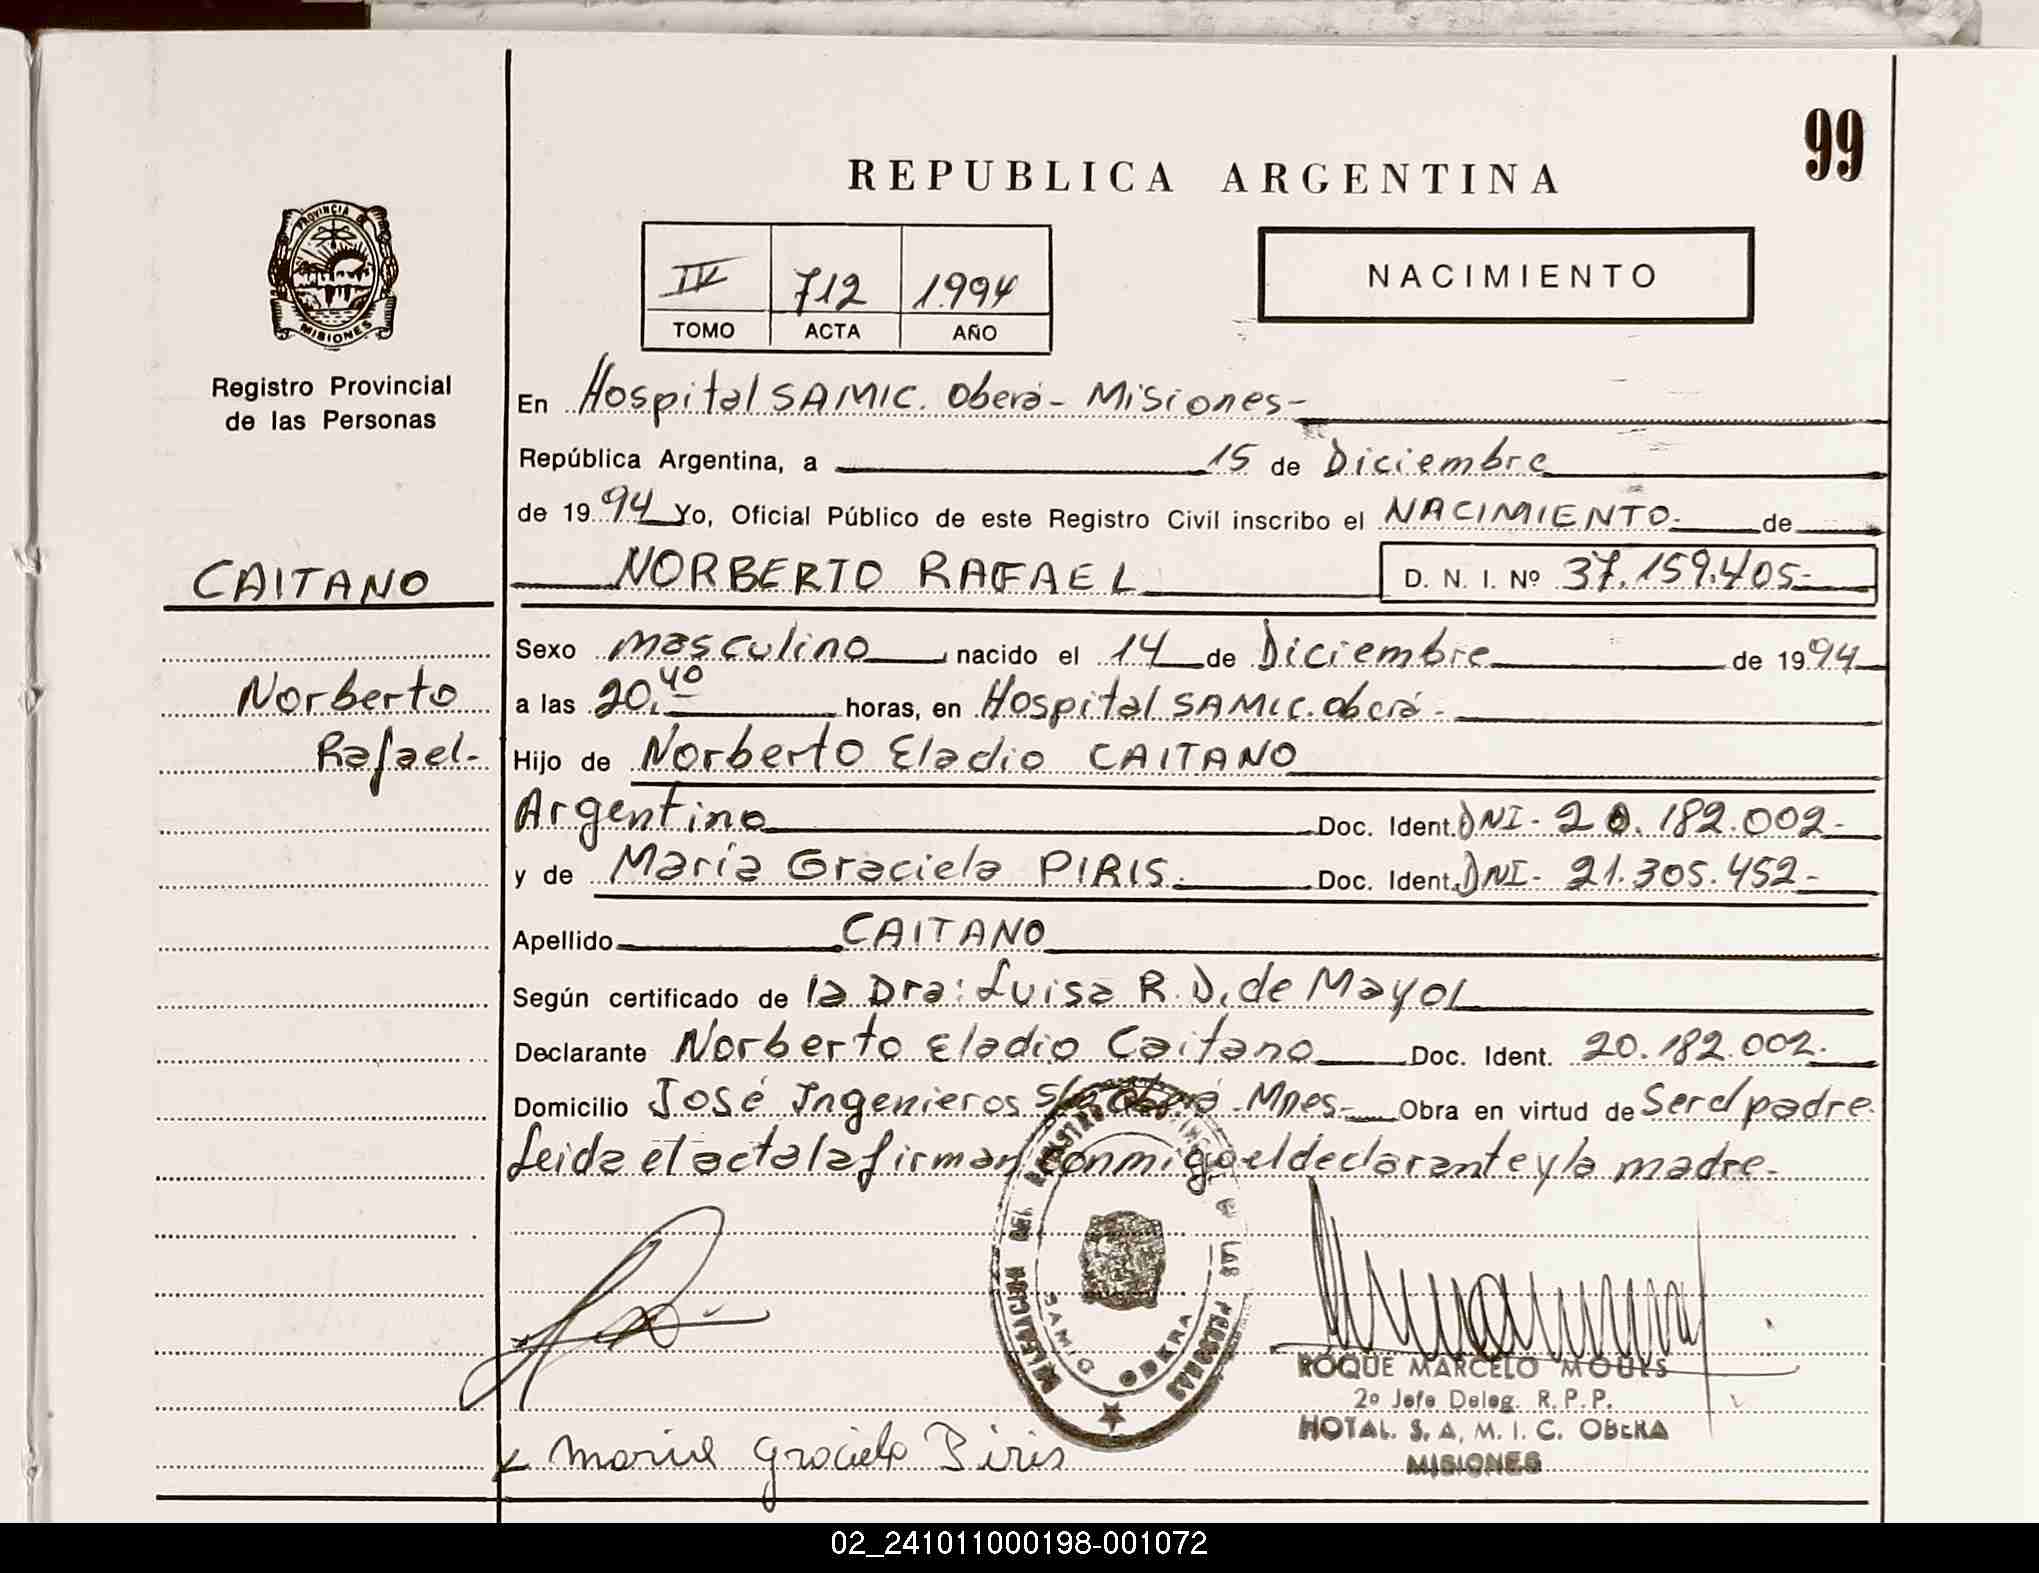 99
REPUBLICA ARGENTINA
PROVINCIA DE
MISIONES
Registro Provincial
de las Personas
IV 712 1.994
TOMO ACTA AÑO
NACIMIENTO
En Hospital SAMIC. Oberá - Misiones -
República Argentina, a 15 de Diciembre
de 1994 Yo, Oficial Público de este Registro Civil inscribo el NACIMIENTO de
CAITANO
NORBERTO RAFAEL D. N. I. Nº 37.159.405-
Sexo masculino nacido el 14 de Diciembre de 1994
Norberto
a las 20,40 horas, en Hospital SAMIC. oberá -
Rafael-
Hijo de Norberto Eladio CAITANO
Argentino Doc. Ident. DNI- 20.182.002-
y de María Graciela PIRIS. Doc. Ident. DNI- 21.305.452-
Apellido CAITANO
Según certificado de la Dra: Luisa R. D. de Mayol
Declarante Norberto Eladio Caitano Doc. Ident. 20.182.002.
Domicilio José Ingenieros Oberá - Mnes- Obra en virtud de Ser el padre.
Leida el acta la firman conmigo el declarante y la madre-
SAMIC OBERA
ROQUE MARCELO
2º Jefe Deleg. R. P. P.
HOTAL. S. A. M. I. C. OBERA
MISIONES
Maria Graciela Piris
02_241011000198-001072